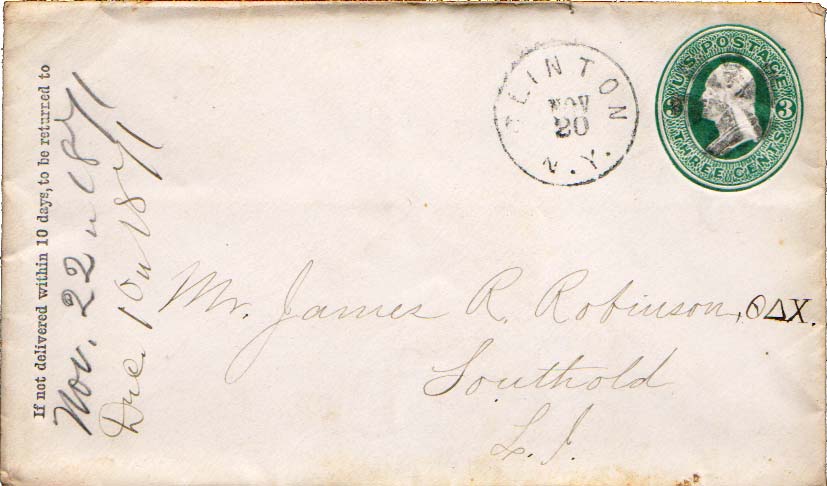 If not delivered within 10 days, to be returned to
Nov. 22n 1871
Dec. 1871
CLINTON
NOV
20
N.Y.
U.S. POSTAGE
3 3
THREE CENTS
Mr. James R. Robinson, ΘΔΧ.
Southold
L. I.